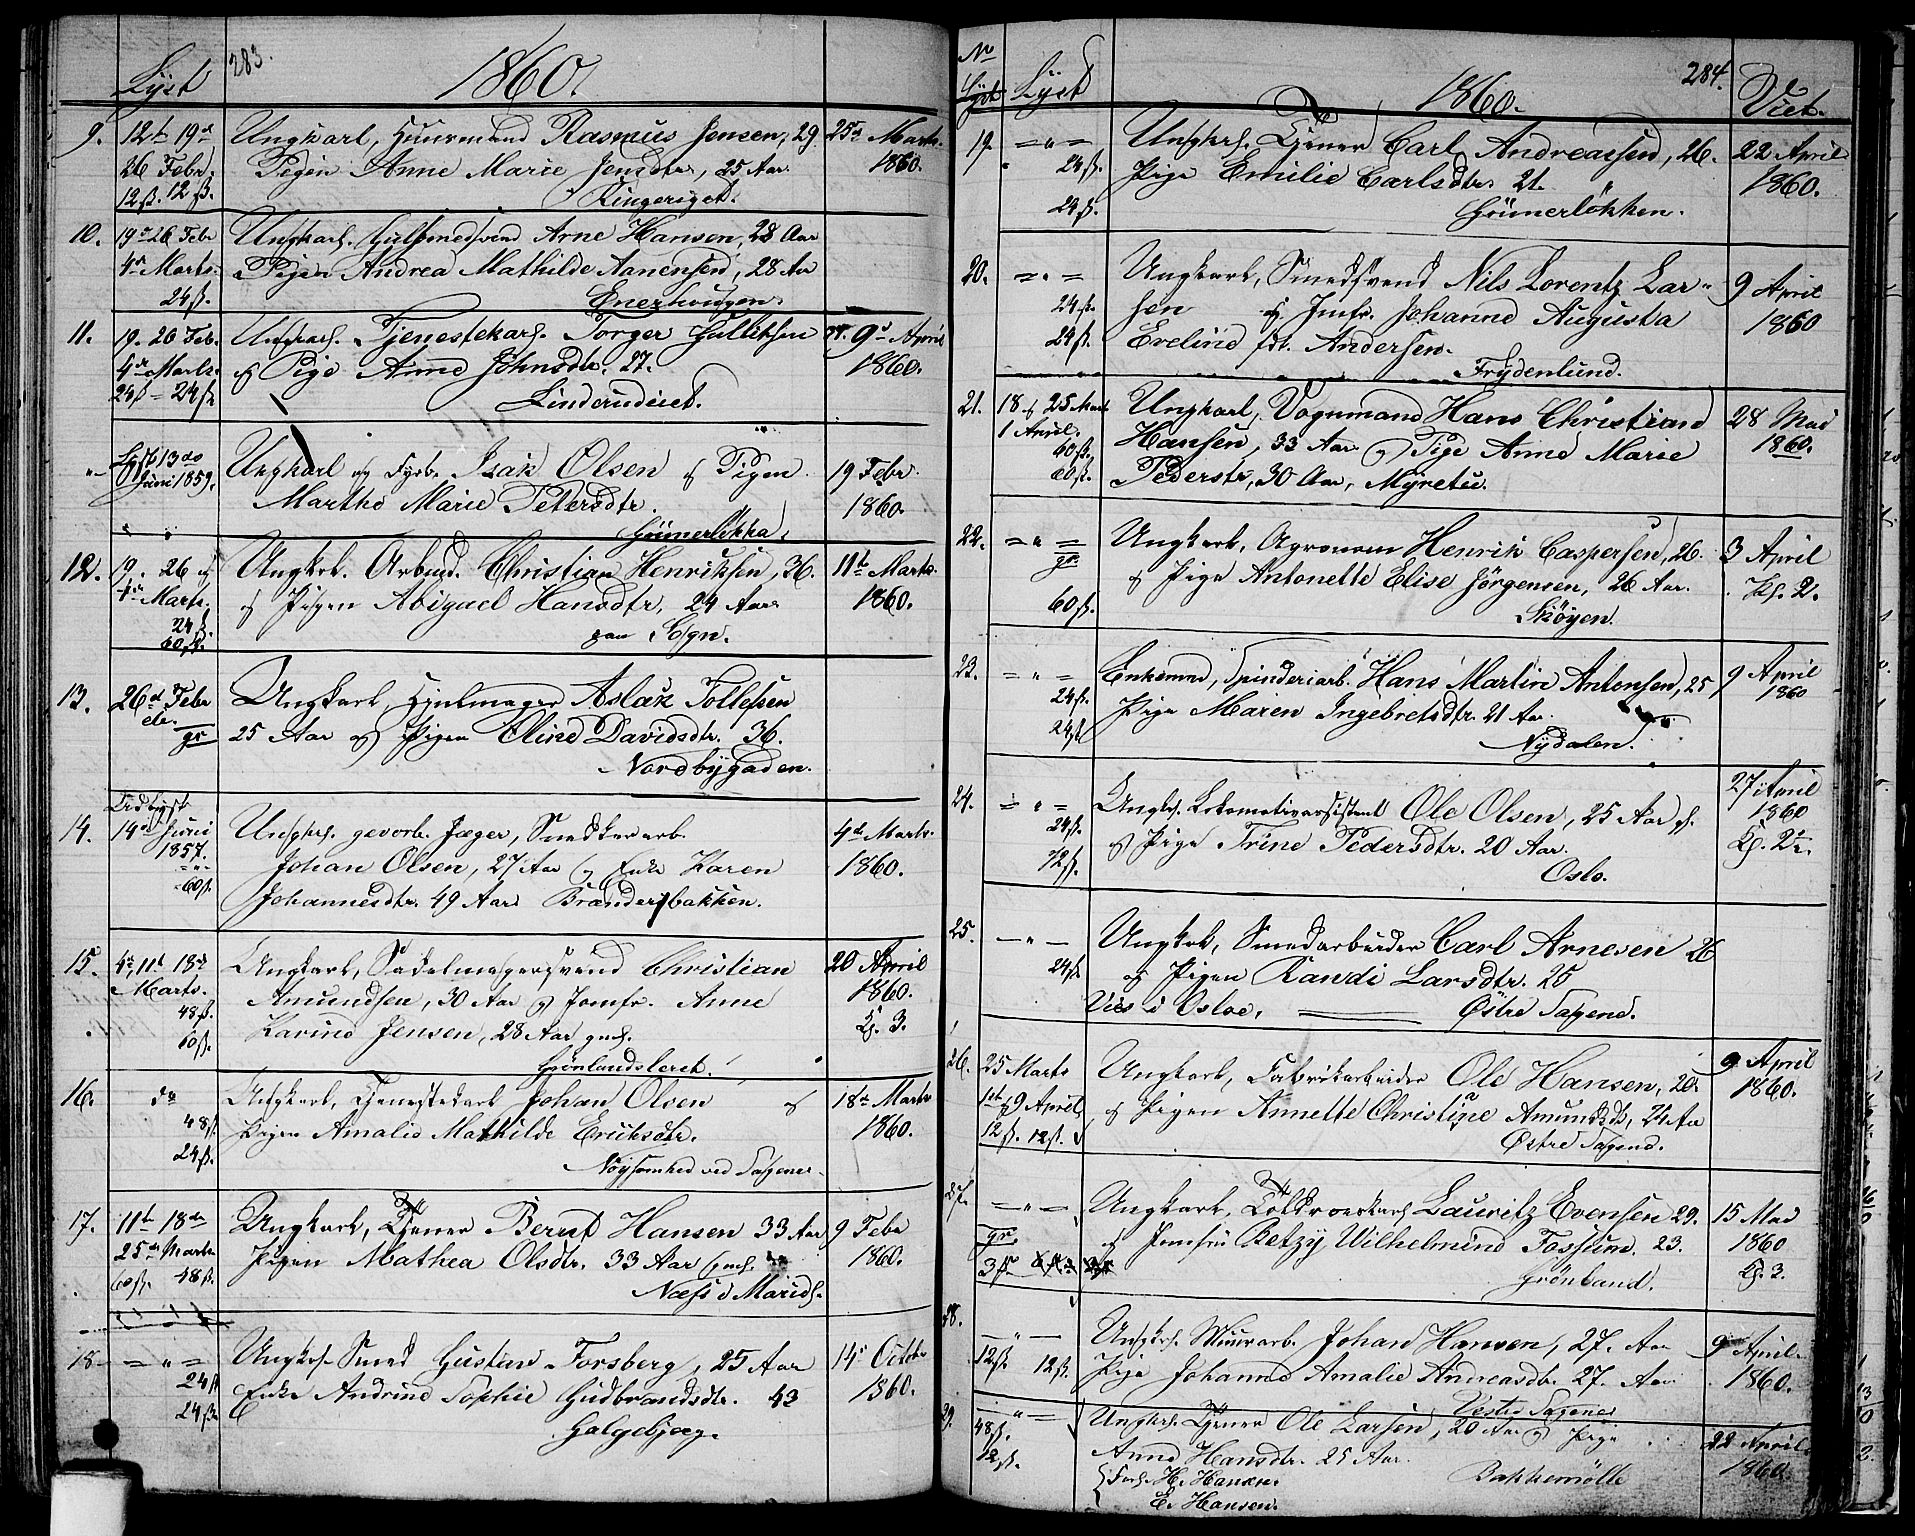 283.
Lyst
1860.
9.
12t 19d
26 Febr.
12ß. 12ß.
Ungkarl, Huusmand Rasmus Jensen, 29
Pigen Anne Marie Jensdtr, 25 Aar
Ringeriget.
25d Marts.
1860.
10.
19d 26 Febr
4de Marts.
24ß.
Ungkarl. Gulsmedsvend Arne Hansen, 28 Aar
Pigen Andrea Mathilde Aanensen, 28 Aar
Enerhougen.
11.
19. 26 Feb.
4de Marts.
24ß - 24ß
Ungkarl. Tjenestekarl. Torger Gulliksen
og Pige Anne Johnsdtr. 27.
Linderudeiet.
9d April
1860.
Lyst 13de
Juni 1859.
Ungkarl og Fyrb. Isak Olsen og Pigen
Marthe Marie Petersdtr.
Grünerløkka.
19 Febr.
1860.
12.
19. 26 og
4de Marts.
24ß.
60ß.
Ungkrl. Arbeid. Christian Henriksen, 36.
og Pigen Abigael Hansdtr, 24 Aar
paa Sogn.
11t Marts.
1860.
13.
26d Febr
etc.
gr
Ungkarl, Hjulmager Aslak Tollefsen
25 Aar og Pigen Oline Davidsdtr. 36.
Nordbygaden.
14.
Udlyst
14d Juni
1857.
60ß.
Ungkrl. gevorb. Jæger, Snedkerarb.
Johan Olsen, 27 Aar og Enke Karen
Johannesdtr. 49 Aar Brandersbakken.
4de Marts.
1860.
15.
4d, 11t 18d
Marts.
48ß.
60ß.
Ungkarl, Sadelmagersvend Christian
Amundsen, 30 Aar og Jomfr. Anne
Karine Jensen, 28 Aar
Grønlandsleret.
20 April
1860.
Kl. 3.
16.
do
48ß
24ß.
Ungkarl, Tjenestekarl Johan Olsen og
Pigen Amalie Mathilde Eriksdtr.
Nøysomhed ved Sagene.
18d Marts
1860.
17.
11t 18de
25de Marts
60ß. 48ß.
Ungkarl, Tjener Bernt Hansen 33 Aar
Pigen Mathea Olsdtr. 33 Aar
Næss i Marids.
9 Febr
1860.
18
24ß
24ß.
Ungkrl. Smed Gustav Forsberg, 25 Aar
Enke Andrine Sophie Gudbrandsdtr. 43
Galgebjerg.
14d Octobr
1860.
No
Lyst
Lyst
1860.
284.
Viet.
19.
24ß.
24ß.
Ungkrl. Tjener Carl Andreassen, 26.
Pige Emilie Carlsdtr. 21.
Grünerløkken.
22 April
1860.
20.
24ß.
24ß.
Ungkarl, Smedsvend Nils Lorentz Lar-
sen og Jmfr. Johanne Augusta
Eveline fdt. Andersen.
Frydenlund.
9 April
1860
21.
18 og 25 Marts
1 April.
60ß.
60ß.
Ungkarl, Vognmand Hans Christian
Hansen, 33 Aar og Pige Anne Marie
Pederstr, 30 Aar, Myretu.
28 Mai
1860.
22.
gr.
60ß.
Ungkarl, Agronom Henrik Caspersen, 26
og Pige Antonette Elise Jørgensen, 26 Aar.
Skøyen.
3 April
Kl. 2.
23.
24ß.
24ß
Enkemd, Spinderiarb. Hans Martin Antonsen, 25
Pige Maren Ingebretsdtr. 21 Aar.
Nydalen.
9 April
1860
24.
24ß.
72ß.
Ungkr. Lokomotivassistent Ole Olsen, 25 Aar gl.
og Pige Trine Pedersdtr. 20 Aar.
Oslo.
27 April
1860
Kl. 2
25.
24ß.
Ungkrl, Smedarbeider Carl Arnesen 26
og Pigen Randi Larsdtr. 25
Vies i Osloe. Østre Sagene.
26.
25 Marts
1st og 9 April,
12ß. 12ß.
Ungkarl, Fabrikarbeider Ole Hansen, 20.
og Pigen Annette Christine Amundsdtr, 21 Aar
Østre Sagene.
9 April
1860.
27.
gr.
Ungkarl, Lauritz Evensen 29.
og Jomfru Betzy Wilhelmine Fossum. 23.
Grønland.
15 Mai
1860
Kl. 3.
28.
12ß. 12ß.
Ungkrl. Muurarb. Johan Hansen, 27. Aar
Pige Johanne Amalie Andreasdtr. 27. Aar
Vestre Sagene
9 April.
1860.
29.
48ß.
12ß.
Ungkrl. Tjener Ole Larsen, 20 Aar og Pige
Anne Hansdtr. 25 Aar.
Forl. H. Hansen.
E. Hansen.
Bakkemølle
22 April
1860